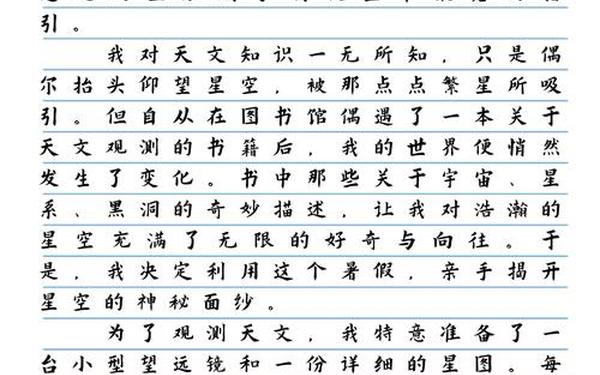 引。
我对天文知识一无所知，只是偶
尔抬头仰望星空，被那点点繁星所吸
引。但自从在图书馆偶遇了一本关于
天文观测的书籍后，我的世界便悄然
发生了变化。书中那些关于宇宙、星
系、黑洞的奇妙描述，让我对浩瀚的
星空充满了无限的好奇与向往。于
是，我决定利用这个暑假，亲手揭开
星空的神秘面纱。
为了观测天文，我特意准备了一
台小型望远镜和一份详细的星图。每